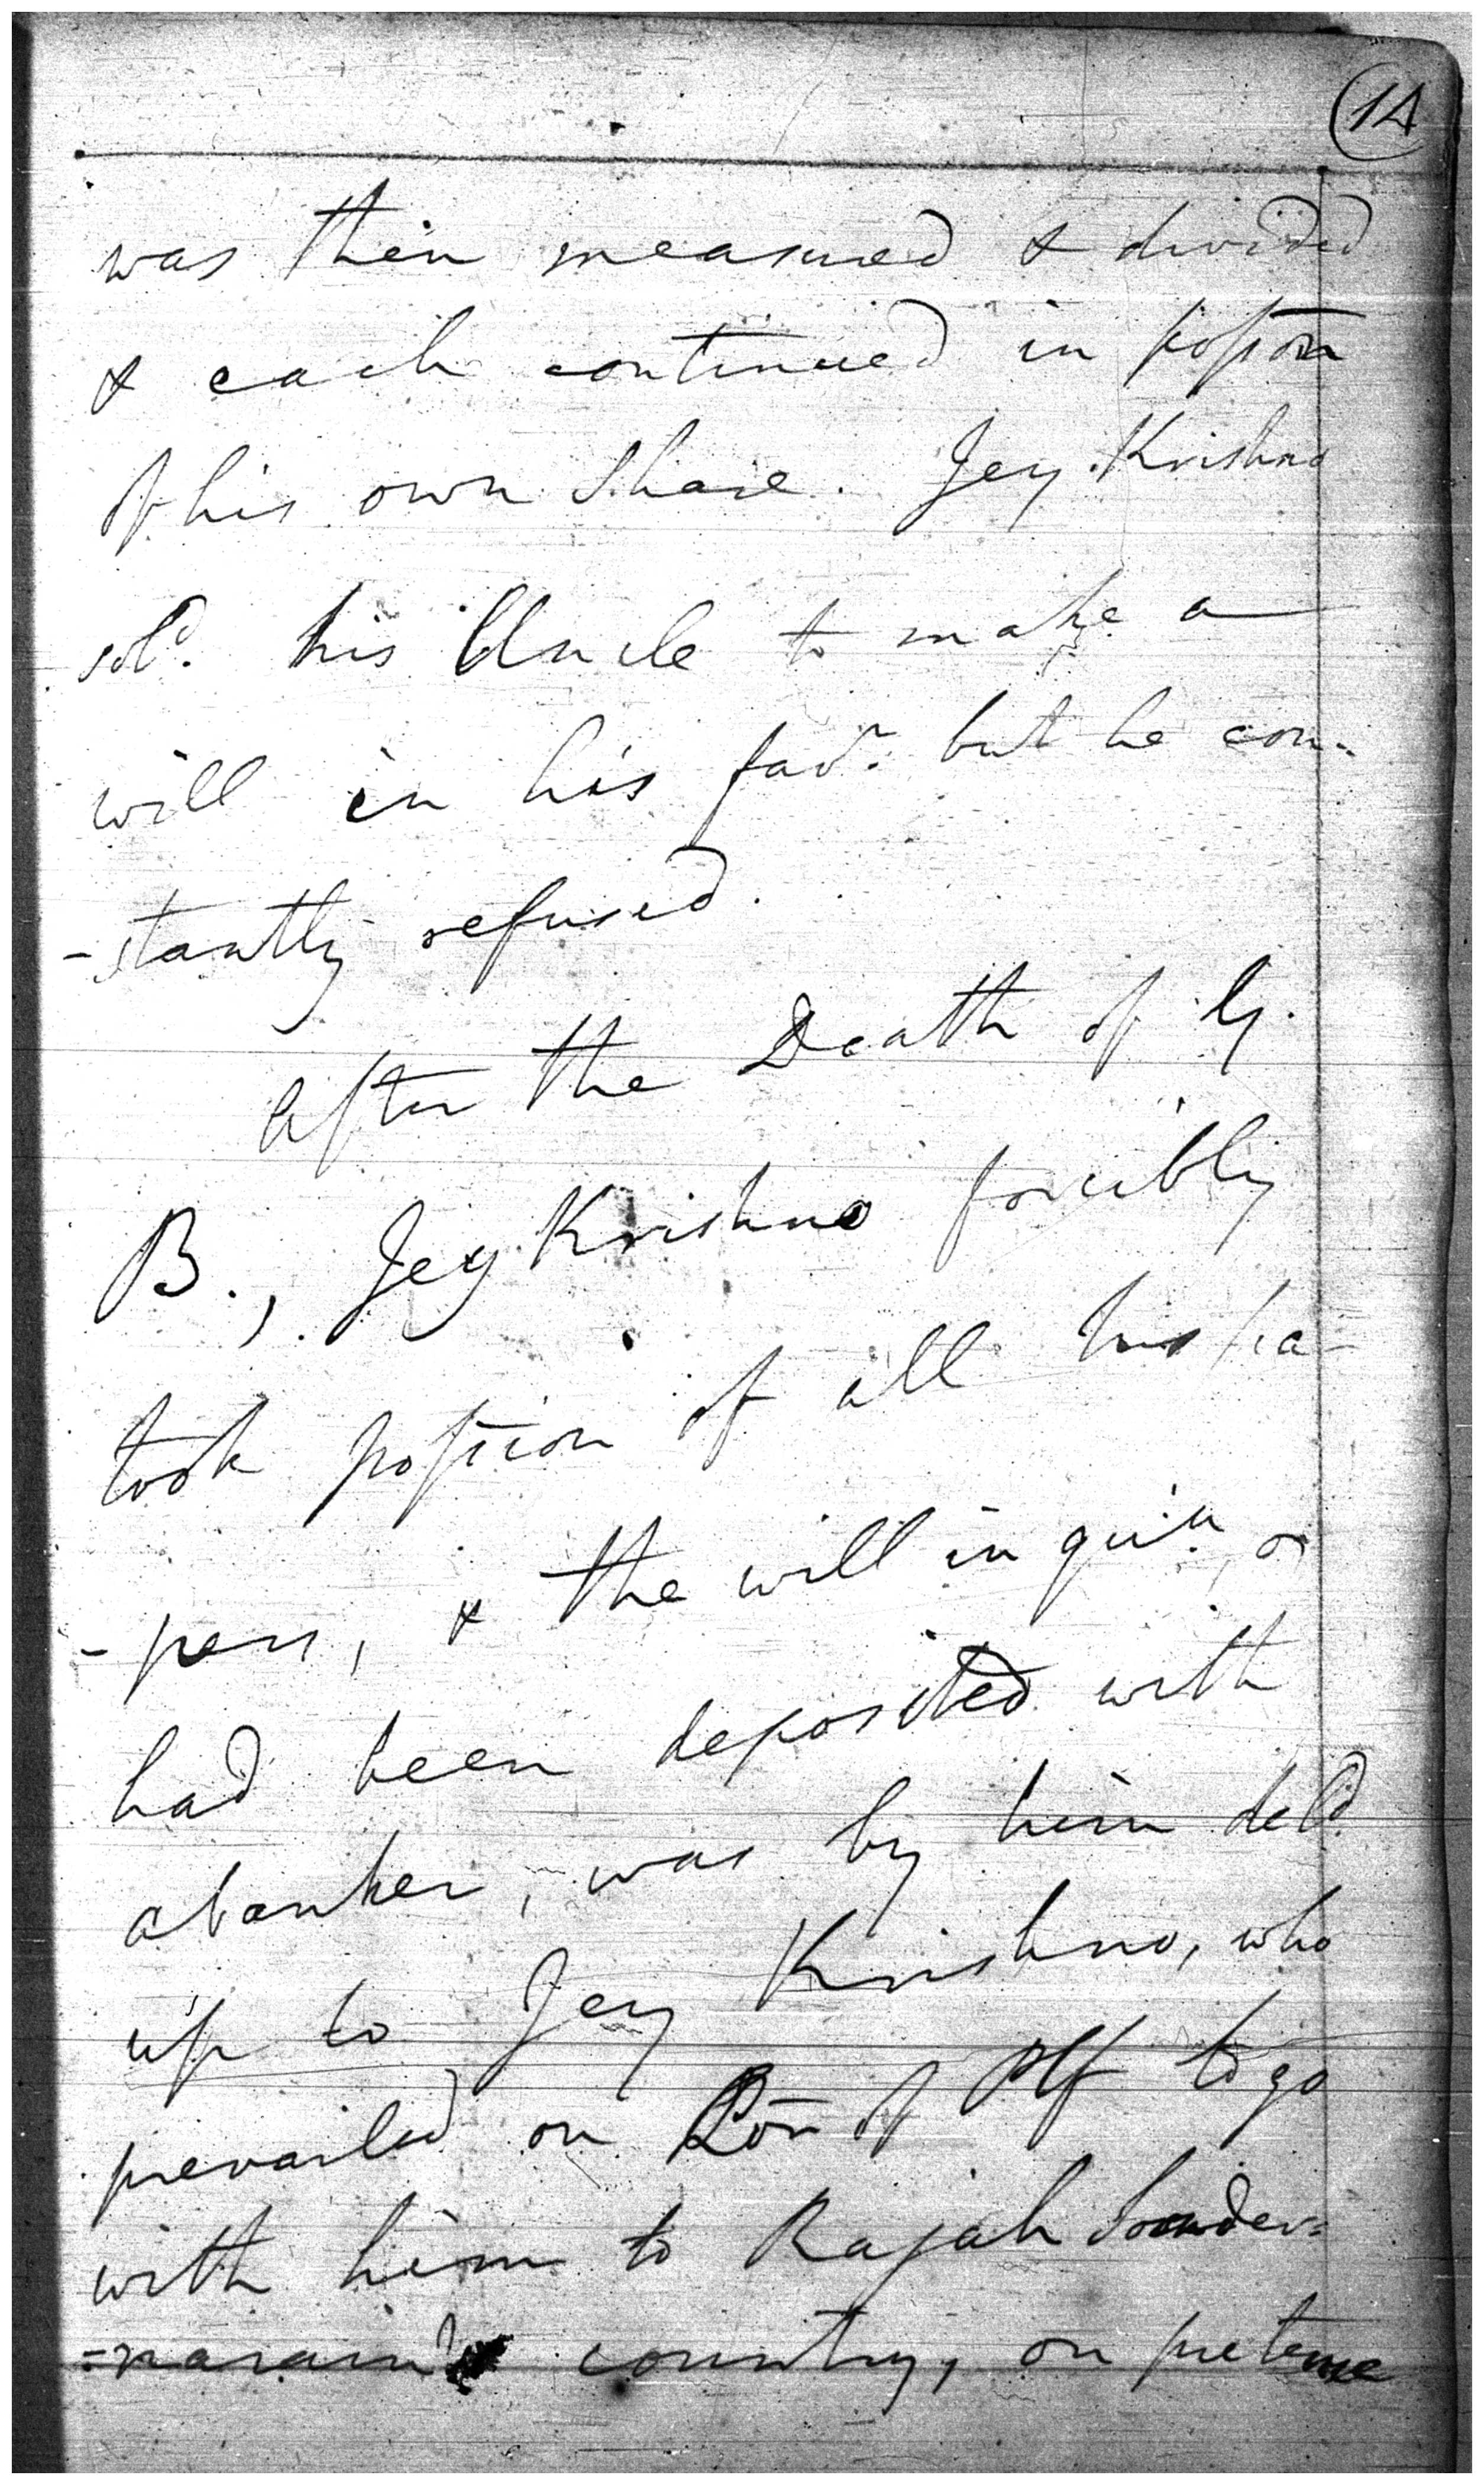 14
was then measured & divided
& each continued in possōn
of his own share. Jey Krishno
sold. his Uncle to make a
will in his favr. but he con-
-stantly refused.
After the Death of G.
B., Jey Krishno forcibly
took possīon of all his pa-
-pers, & the will in
had been deposited with
a banker, was by him deld.
up to Jey Krishno, who
prevailed on of Plf to go
with him to Rajah Sunder=
=narain's country, on pretence